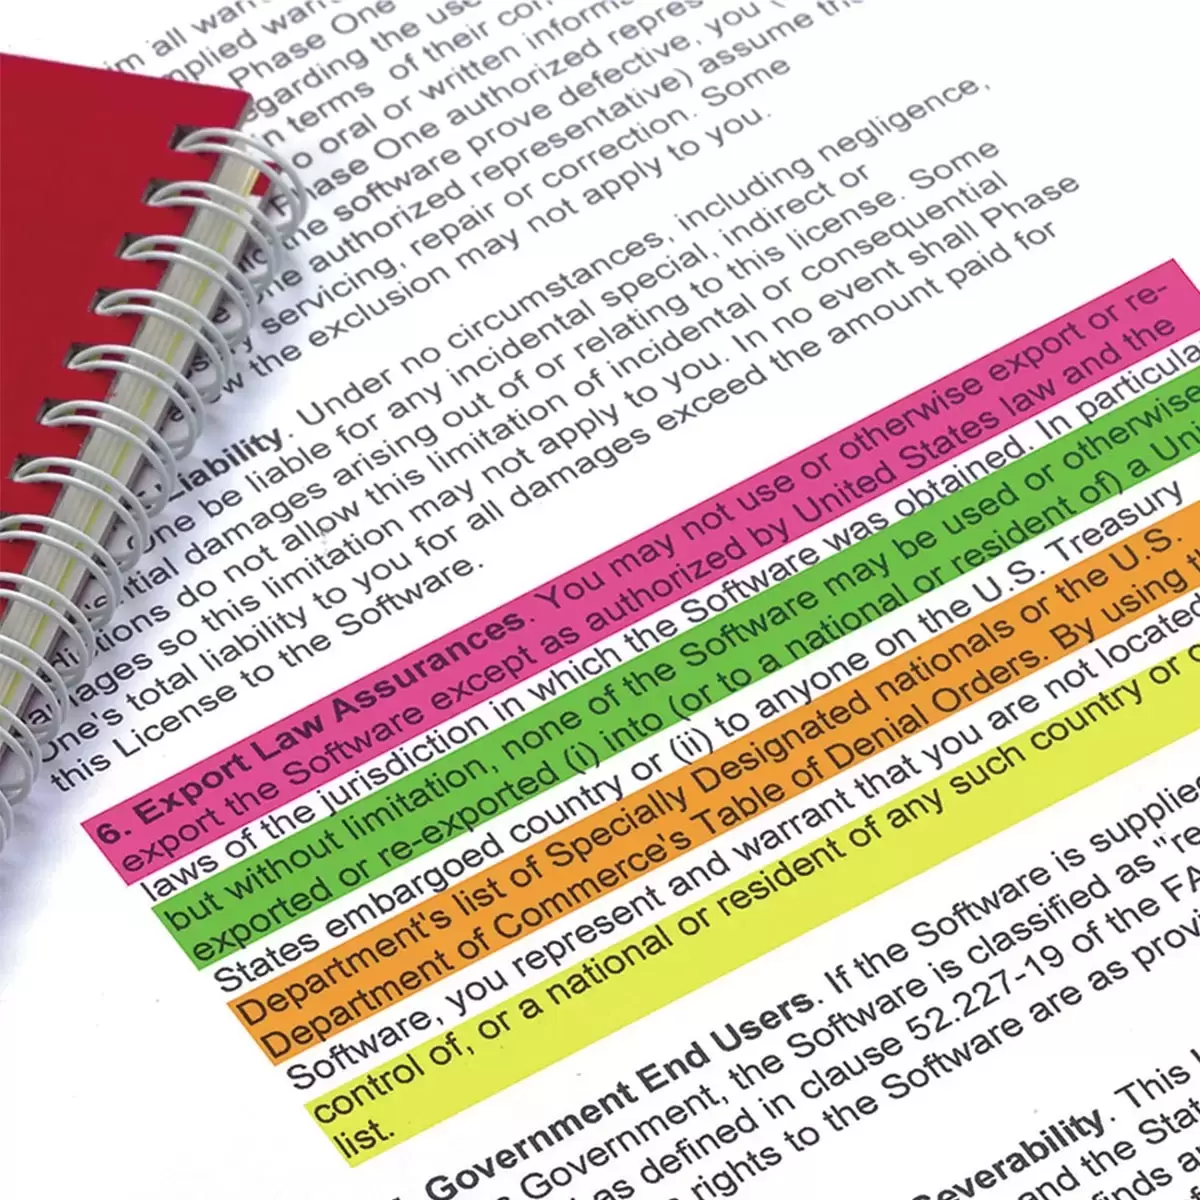 im all warr
mplied warr
Phase One
garding the use
n terms of their cor
o oral or written inform
Phase One authorized repres
the software prove defective, you (
ne authorized representative) assume the
servicing, repair or correction. Some
w the exclusion may not apply to you.
Liability. Under no circumstances, including negligence,
One be liable for any incidental special, indirect or
ntial damages arising out of or relating to this license. Some
dictions do not allow this limitation of incidental or consequential
mages so this limitation may not apply to you. In no event shall Phase
One's total liability to you for all damages exceed the amount paid for
this License to the Software.
6. Export Law Assurances. You may not use or otherwise export or re-
export the Software except as authorized by United States law and the
laws of the jurisdiction in which the Software was obtained. In particula
but without limitation, none of the Software may be used or otherwise
exported or re-exported (i) into (or to a national or resident of) a Uni
States embargoed country or (ii) to anyone on the U.S. Treasury
Department's list of Specially Designated nationals or the U.S.
Department of Commerce's Table of Denial Orders. By using t
Software, you represent and warrant that you are not located
control of, or a national or resident of any such country or o
list.
Government End Users. If the Software is supplie
Government, the Software is classified as "re
as defined in clause 52.227-19 of the FA
rights to the Software are as prov
Severability. This
and the Stat